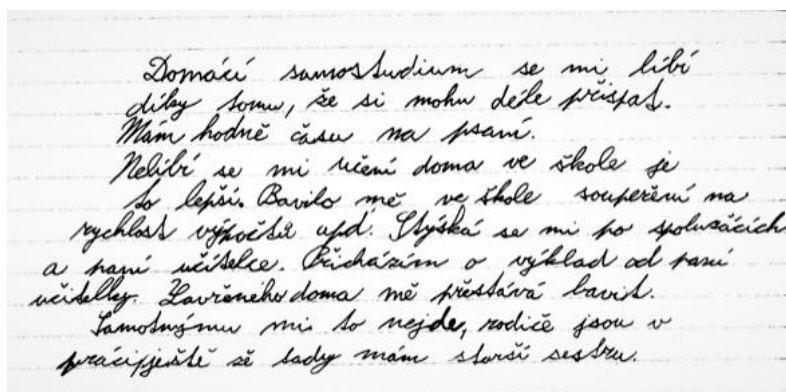 Domácí samostudium se mi líbí
díky tomu, že si mohu déle přispat.
Mám hodně času na psaní.
Nelíbí se mi učení doma ve škole je
to lepší. Bavilo mě ve škole soupeření na
rychlost výpočtů apd. Stýská se mi po spolužácích
a paní učitelce. Přicházím o výklad od paní
učitelky. Zavřeného doma mě přestává bavit.
Samotnýmu mi to nejde, rodiče jsou v
práci ještě že tady mám starší sestru.